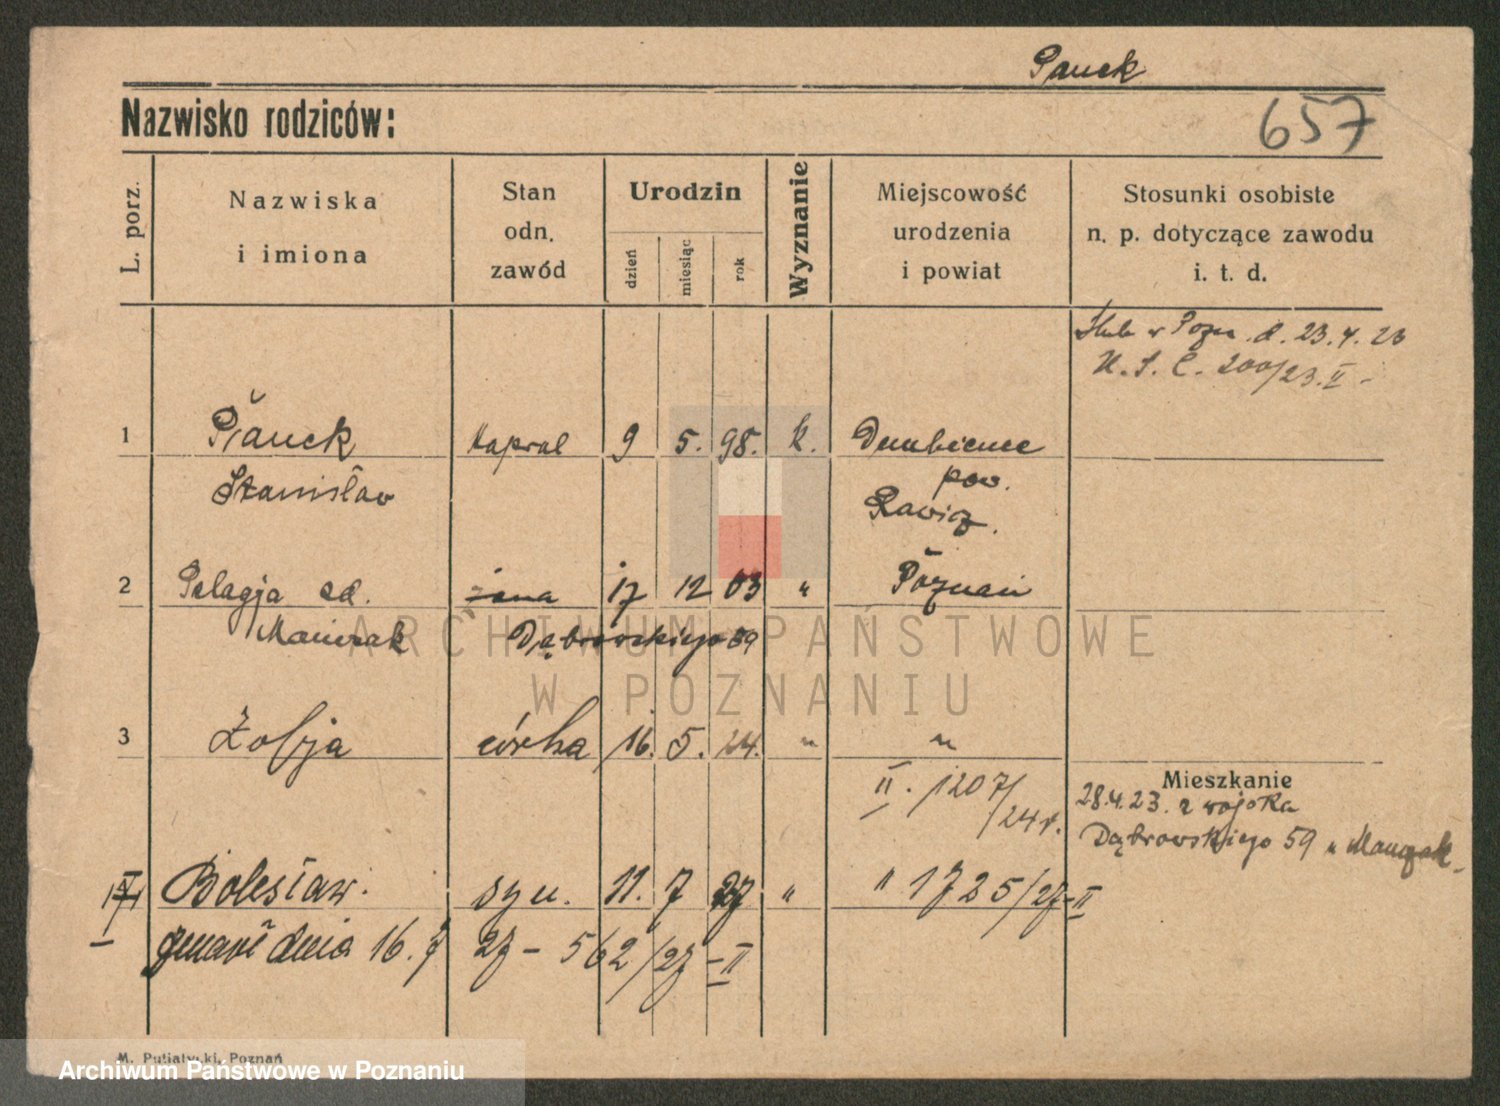 Panek
Nazwisko rodziców:
657
L. porz.
Nazwiska
i imiona
Stan
odn.
zawód
Urodzin
dzień
miesiąc
rok
Wyznanie
Miejscowość
urodzenia
i powiat
Stosunki osobiste
n. p. dotyczące zawodu
i. t. d.
Ślub w Pozn. d. 23.4.23
U.S.C. 200/23.II -
1 kapral 9 5. 98. k.
Stanisław pow.
Rawicz.
2 Pelagja żona 17 12 03 " Poznań
Dąbrowskiego 59
3 Zofja córka 16. 5. 24. " "
II. 1207/24 r.
Mieszkanie
28.4.23. z wojska
Dąbrowskiego 59 u
Bolesław. syn. 11. 7 27 " " 1725/27-II
zmarł dnia 16. 7 27 - 562/27 - II
M. Putiatycki, Poznań
ARCHIWUM PAŃSTWOWE
W POZNANIU
Archiwum Państwowe w Poznaniu